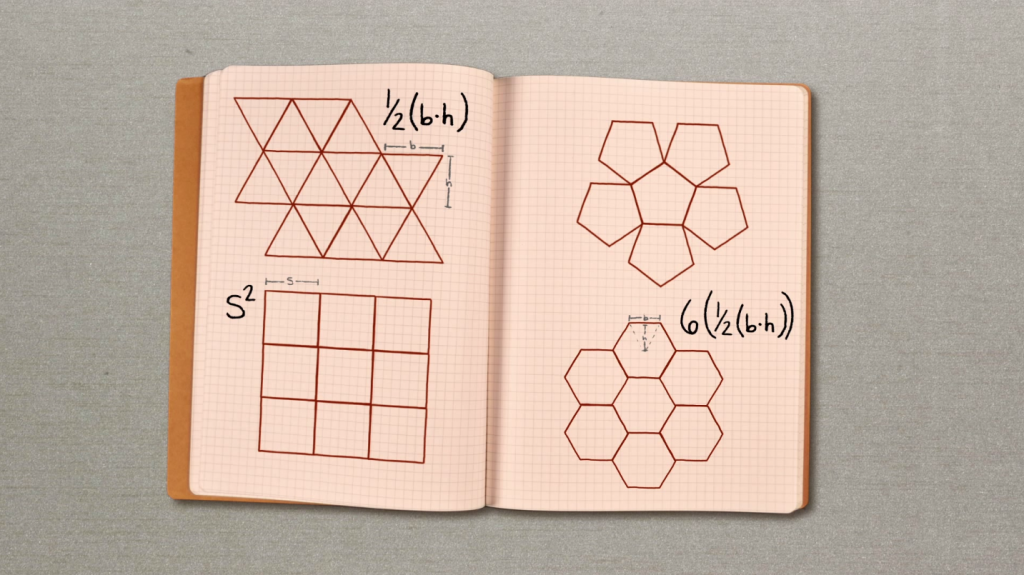 ½(b·h)
b
h
s
S²
6(½(b·h))
b
h